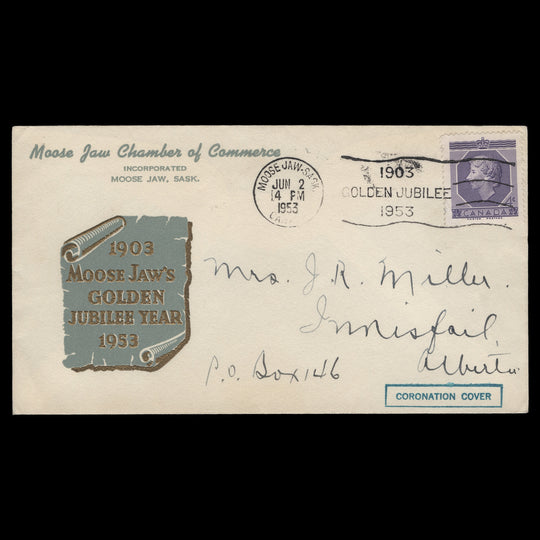 Moose Jaw Chamber of Commerce
INCORPORATED
MOOSE JAW, SASK.
MOOSE JAW-SASK.
JUN 2
14 PM
1953
1903
GOLDEN JUBILEE
1953
4¢
CANADA
1903
MOOSE JAW'S
GOLDEN
JUBILEE YEAR
1953
Mrs. J. R. Miller.
Innisfail,
P.O. Box 146
Alberta
CORONATION COVER